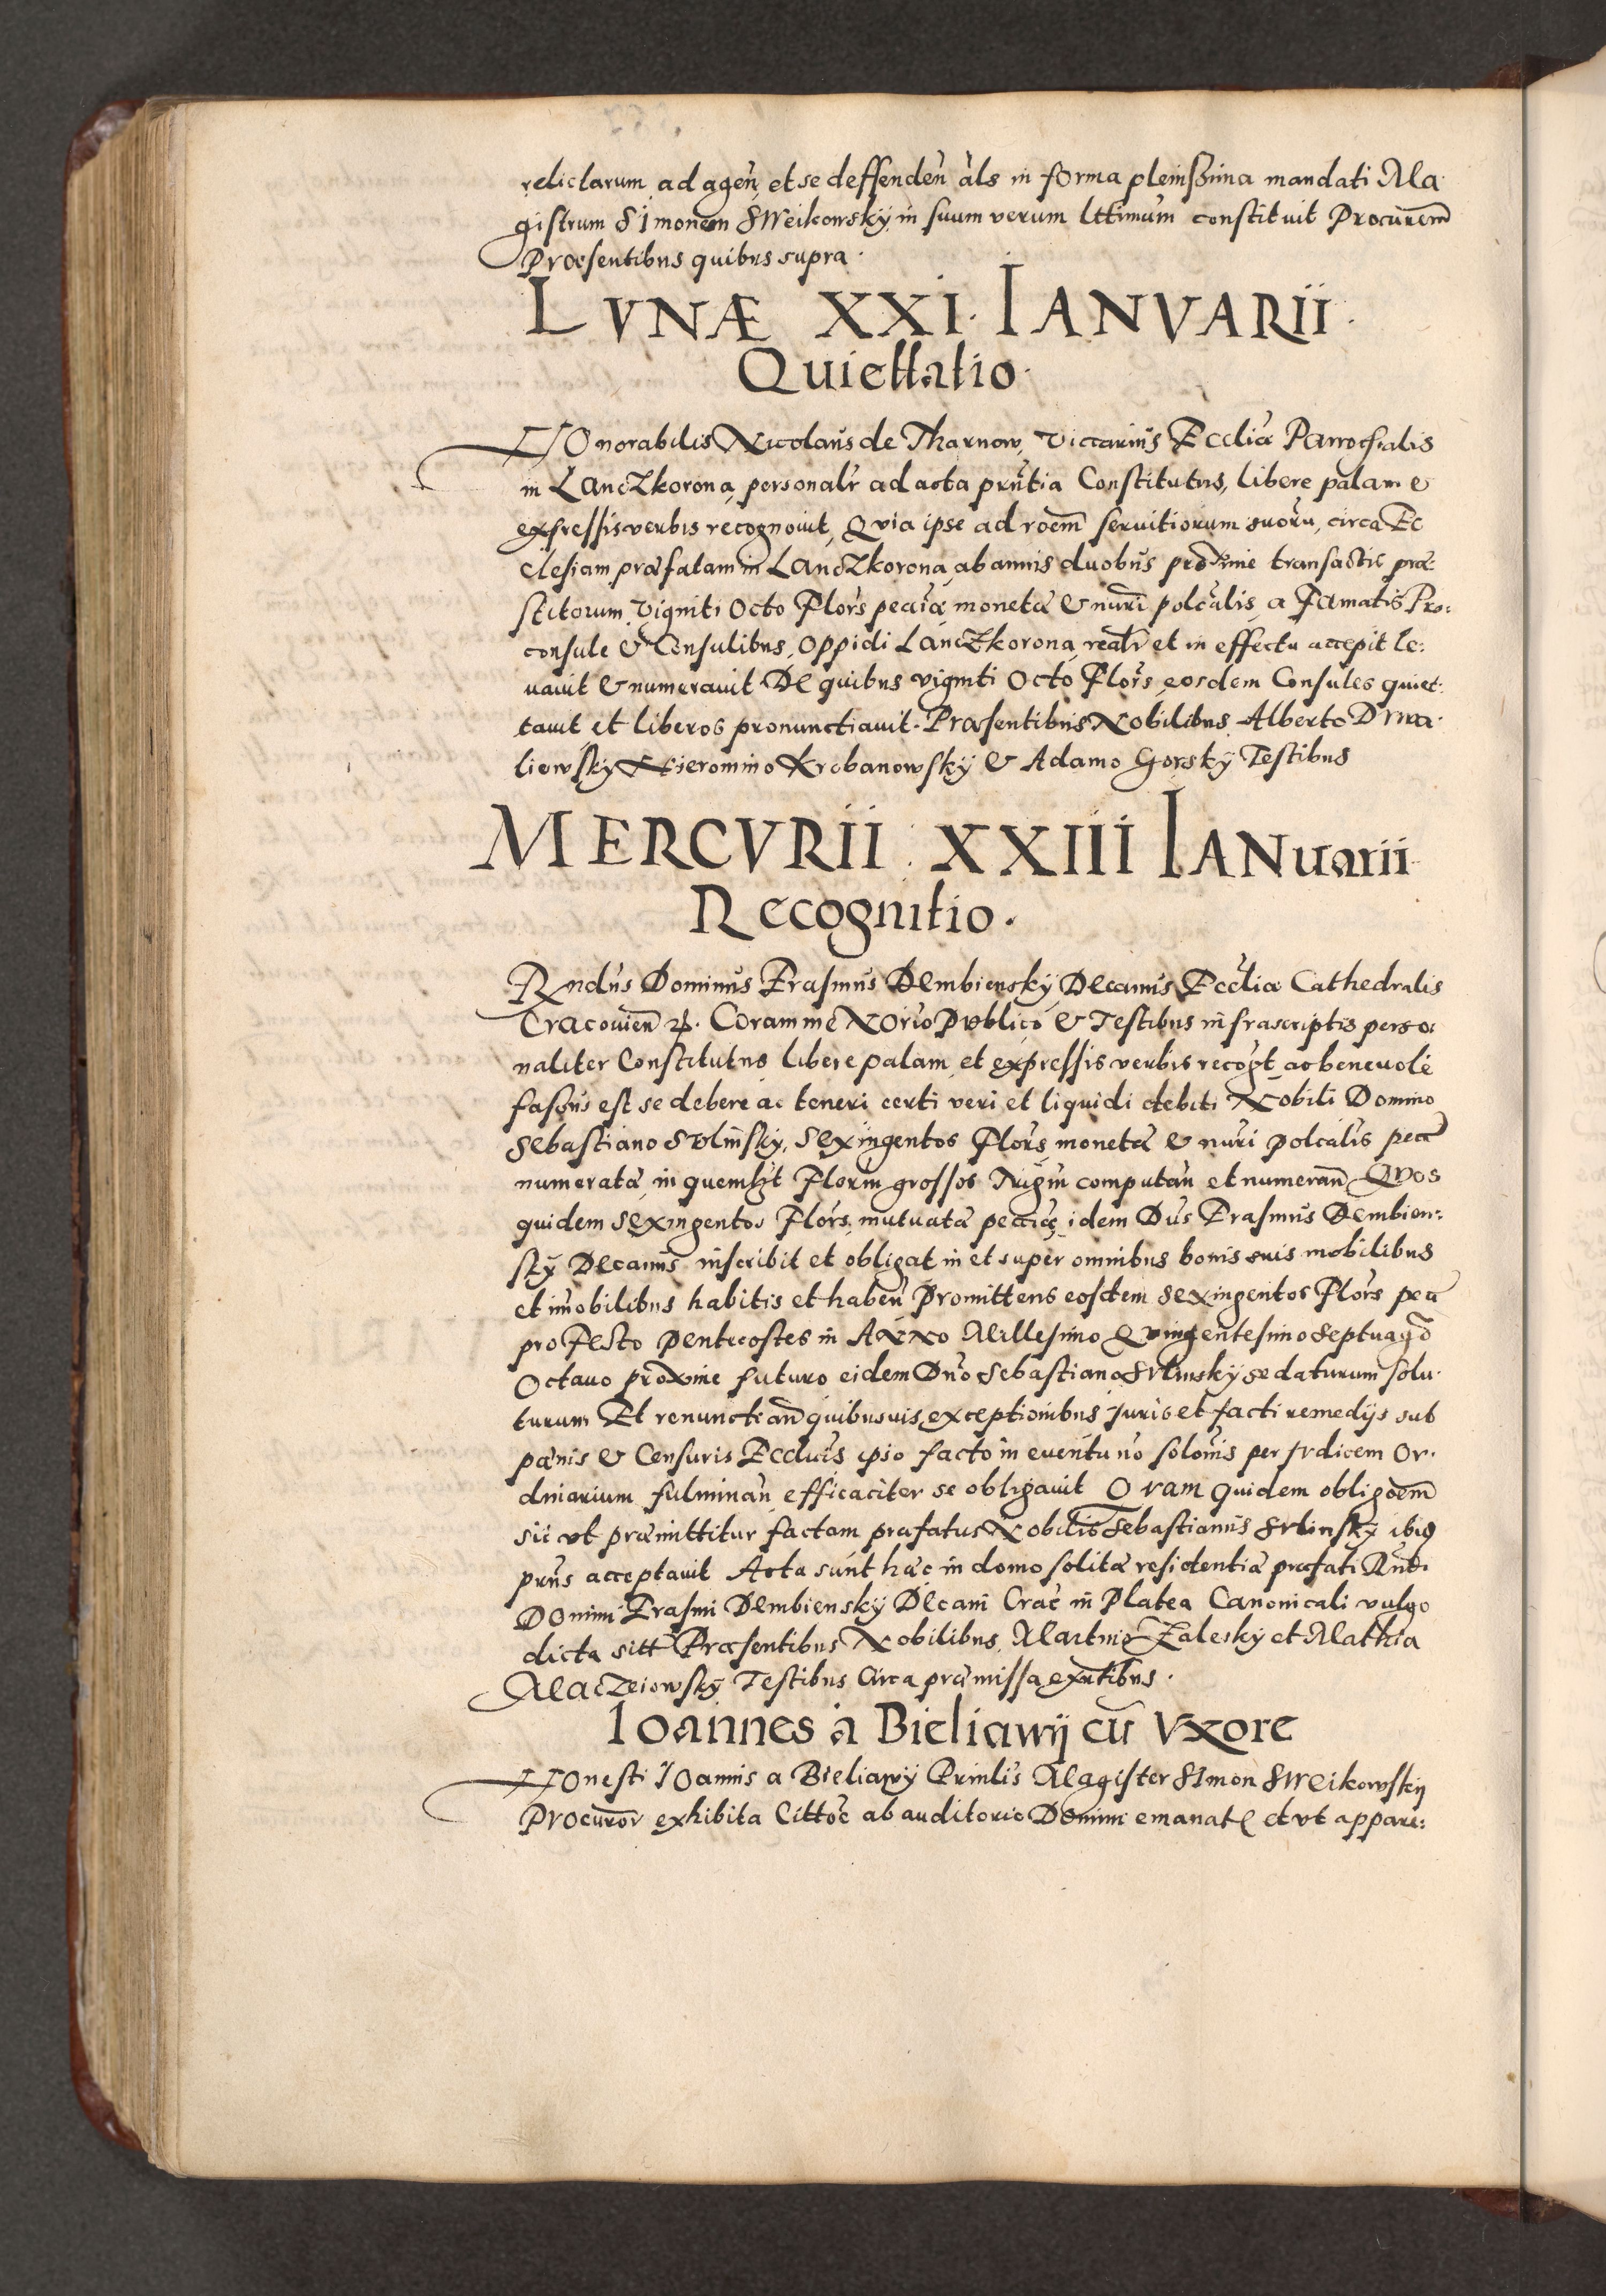 relictarum ad agen̄ et se deffenden̄ als in forma plenissima mandati Ma
gistrum Simonem Sweikowskÿ in suum verum lttimum constituit Procurem̄
Præsentibus quibus supra.
LVNÆ XXI. IANVARII.
Quiettatio.
HOnorabilis Nicolaus de Tharnow, Viccarius Ecclīæ Parrochialis
in LancZkorona personalr̄ ad acta prn̄tia Constitutus, libere palam &
expressis verbis recognovit, Quia ipse ad roem̄ servitiorum suorū, circa Ec
clesiam præfatam in LancZkorona ab annis duobus proxime transactis præ
stitorum, viginti Octo Flor̄s pecc̄iæ monetæ & nūri polcālis a Famatis Pro:
consule & Consulibus, Oppidi LancZkorona realr̄ et in effectu accepit le:
vavit & numeravit De quibus viginti Octo Flor̄s eosdem Consules quiet:
tavit et liberos pronunctiavit. Præsentibus Nobilibus Alberto Dma
liowskÿ Hieronimo Krcbanowskÿ & Adamo Gorskÿ Testibus
MERCVRII XXIII IANuarii
Recognitio.
Rndūs Dominus Erasmus Dembienskÿ Decanus Ecclīæ Cathedralis
Cracovien̄ &. Coram me Norīo Publico & Testibus infrascriptis perso
naliter Constitutus libere palam et expressis verbis recogt̄ ac benevole
fassus est se debere ac teneri certi veri et liquidi debiti Nobili Domino
Sebastiano Srlinskÿ, Sexingentos Flor̄s monetæ & nūri polcālis pecc̄
numeratæ, in quemlzt Floren̄ grossos Trigin̄ computan̄ et numeran̄ Quos
quidem sexingentos Flor̄s mutuatæ pecc̄iæ idem Dn̄s Erasmus Dembien:
skÿ Decanus inscribit et obligat in et super omnibus bonis suis mobilibus
et im̄obilibus habitis et haben̄ Promittens eosdem sexingentos Flor̄s pecc̄
pro Festo Pentecostes in ANNO Millesimo Quingentesimo Septuago
Octavo proxime futuro eidem Dn̄o Sebastiano Srlinskÿ se daturum solu
turum Et renunctian̄ quibusvis exceptionibus Juris et facti remedijs sub
pænis & Censuris Ecclīcis ipso facto in eventu nō solōnis per Judicem Or
dinarium fulminan̄ efficaciter se obligavit Qvam quidem obligoem̄
sic vt præmittitur factam præfatus Nobilis Sebastianus Srlinskÿ ibiq
prn̄s acceptavit Acta sunt hæc in domo solitæ residentiæ præfati Rndi
Domini Erasmi Dembienskÿ Decani Crac̄ in Platea Canonicali vulgo
dicta sitt̄ Præsentibus Nobilibus Martino Zaleskÿ et Mathia
MacZeiowskÿ Testibus circa præmissa exn̄tibus.
Ioannes a Bieliawij cū Vxore
HOnesti JOannis a Bieliawÿ Prinlis Magister SImon Sweikowskij
Procuror̄ exhibita Cittoē ab auditorio Domini emanatę et vt appare: